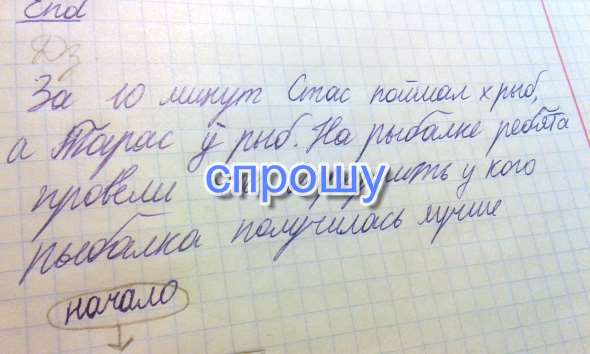 End
Дз
За 10 минут Стас поймал x рыб,
а Тарас y рыб. На рыбалке ребята
провели у кого
спрошу
рыбалка получилась лучше
начало